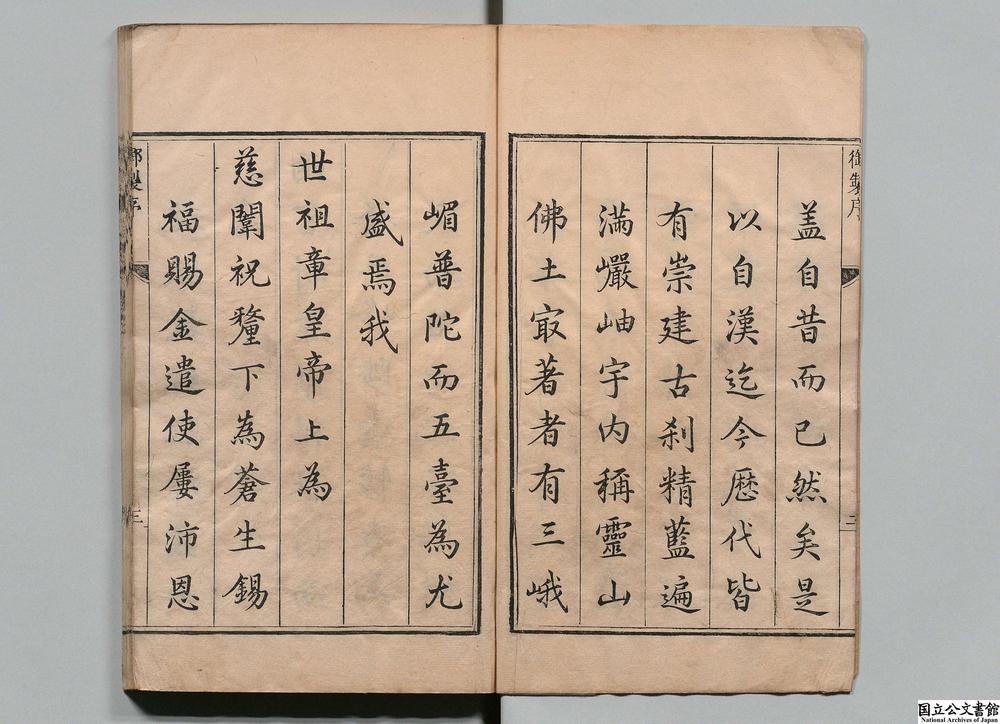 御製序
三
盖自昔而已然矣是
以自漢迄今歷代皆
有崇建古刹精藍遍
滿巖岫宇内稱靈山
佛土㝡著者有三峨
嵋普陀而五臺為尤
盛焉我
世祖章皇帝上為
慈闈祝釐下為蒼生錫
福賜金遣使屢沛恩
御製序
三
国立公文書館
National Archives of Japan